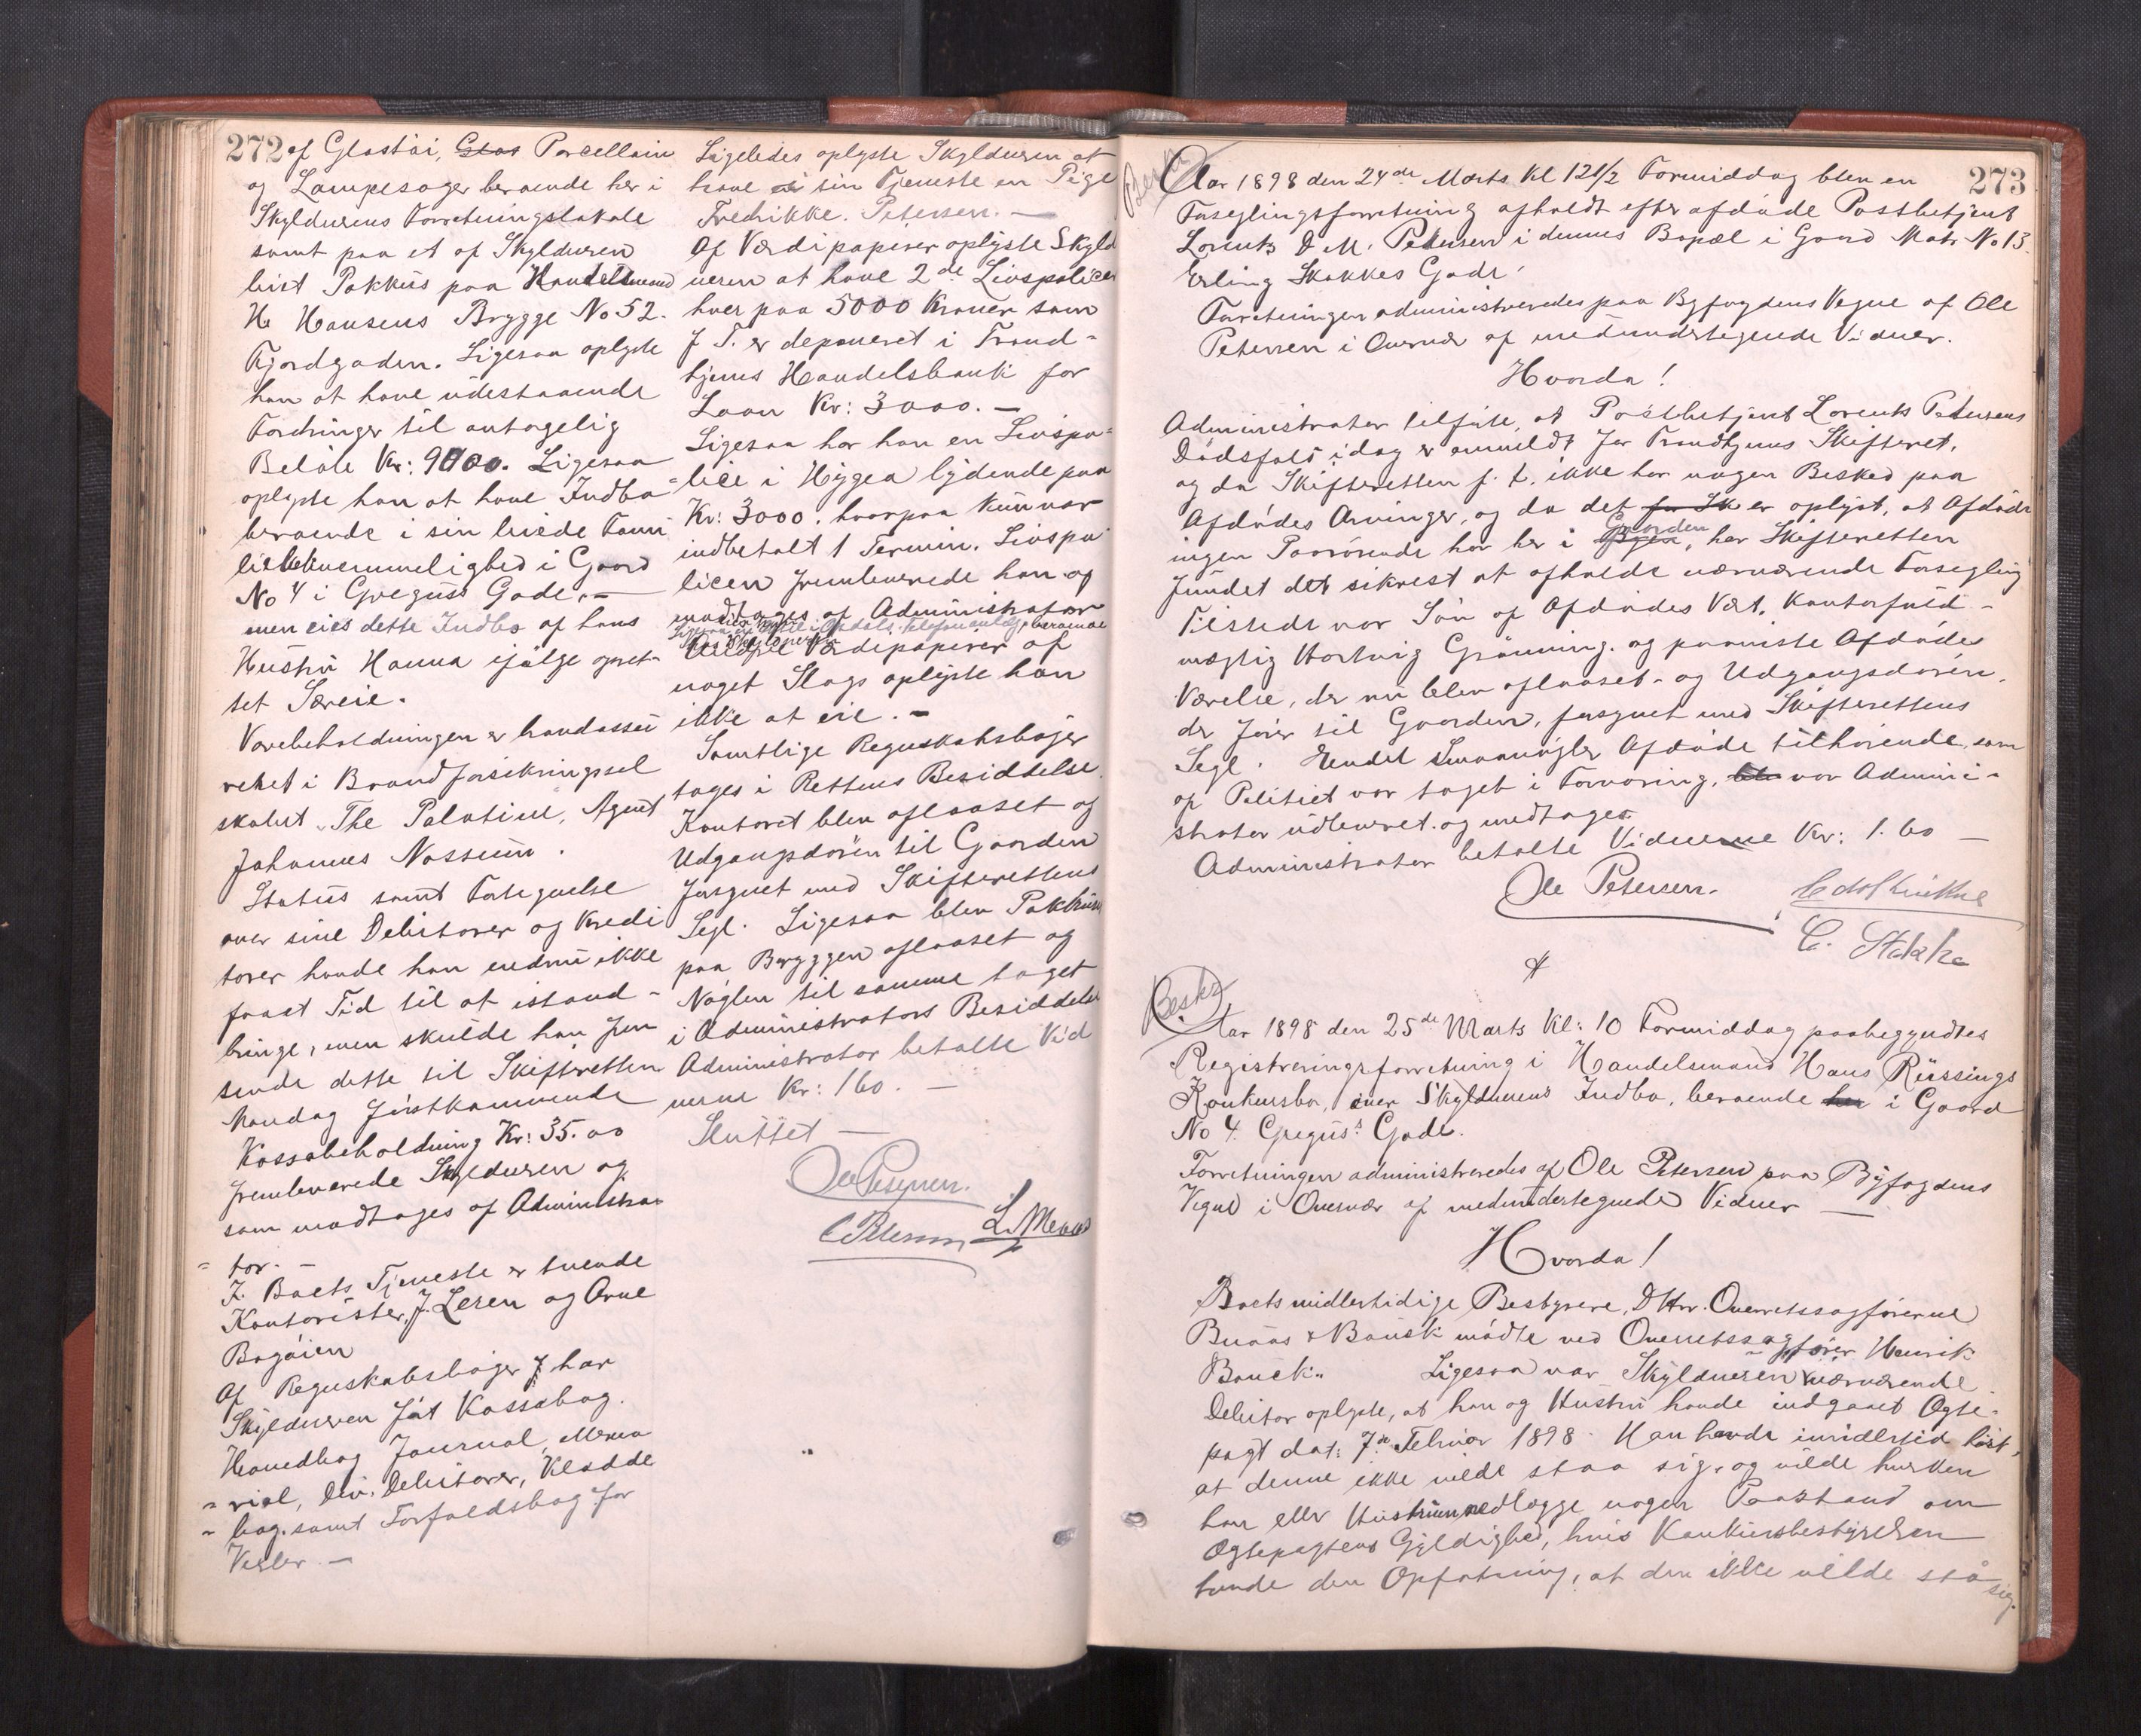 272 af Glastöi, Glas Porcellain
og Lampesager beroende her i
Skyldnerens Forretningslokale
samt paa et af Skyldneren
leiet Pakhus paa Handelsmand
H. Hansens Brygge No 52.
Fjordgaden. Ligesaa oplyste
han at have udestaaende
Fordringer til antagelig
Beløb Kr: 9000. Ligesaa
oplyste han at have Indbo
beroende i sin leiede Fami
liebekvemmelighed i Gaard
No 4 i Gregus's Gade. —
men eies dette Indbo af hans
Hustru Hanna ifölge opret-
tet Særeie.
Varebeholdningen er brandassu
reret i Brandforsikringssel
skabet "The Palatine, Agent
Johannes Nossum.
Status samt Fortegnelse
over sine Debitorer og Kredi
torer havde han endnu ikke
faaet Tid til at istand-
bringe, men skulde han frem
sende dette til Skifteretten
Mandag förstkommende
Kassabeholdning Kr: 35.00
fremleverede Skyldneren og
som modtages af Administra
- tor. -
I Boets Tjeneste er tvende
Kontorister, J. Leren og Arne
Bogöien
Af Regnskabsböger har
Skyldneren fört Kassabog.
Hovedbog Journal, Memo
- rial, Div. Debitorer, Kladde
- bog. samt Forfaldsbog for
Vexler —
Ligeledes oplyste Skylderen at
have i sin Tjeneste en Pige
Fredrikke. Petersen. —
Af Værdipapirer oplyste Skyld
neren at have 2de Livspolicer
hver paa 5000 Kroner som
f. T. er deponeret i Trond-
hjems Handelsbank for
Laan Kr: 3000. —
Ligesaa har han en Livspo-
lice i Hygea lydende paa
Kr: 3000. hvorpaa kun var
indbetalt 1 Termin. Livspo
licen fremleverede han og
modtages af Administrator
Værdipapirer af
noget Slags oplyste han
ikke at eie. —
Samtlige Regnskabsböger
tages i Rettens Besiddelse.
Kontoret blev aflaaset og
Udgangsdören til Gaarden
forsynet med Skifterettens
Segl. Ligesaa blev Pakhuset
paa Bryggen aflaaset og
Nöglen til samme taget
i Administrators Besiddelse
Administrator betalte Vid
nerne Kr: 1.60. —
Sluttet —
Ole Petersen.
C Petersen
273
Aar 1898 den 24de Marts Kl 12 1/2 Formiddag blev en
Forseglingsforretning afholdt efter afdöde Postbetjent
Lorents D. M. Petersen i dennes Bopæl i Gaard Matr No 13.
Erling Skakkes Gade.
Forretningen administreredes paa Byfogdens Vegne af Ole
Petersen i Overvær af medundertegnede Vidner.
Hvorda!
Administrator tilförte, at Postbetjent Lorents Petersens
Dödsfald idag er anmeldt for Trondhjems Skifteret,
og da Skifteretten f. t. ikke har nogen Besked paa
Afdödes Arvinger, og da det for Sk er oplyst, at Afdöde
ingen Paarörende har her i Byen Gaarden, har Skifteretten
fundet det sikrest at afholde nærværende Forsegling
Tilstede var Sön af Afdödes Vært, Kontorfuld-
mægtig Hartvig Grönning. og paaviste Afdödes
Værelse, der nu blev aflaaset og Udgangsdören,
der förer til Gaarden, forsynet med Skifterettens
Segl. Endel Smaanögler Afdöde tilhörende, som
af Politiet var taget i Forvaring, ble var Admini-
strator udleveret og medtages
Administrator betalte Vidnerne Kr: 1.60 —
Ole Petersen.
Beskr
Aar 1898 den 25de Marts Kl: 10 Formiddag paabegyndtes
Registreringsforretning i Handelsmand Hans Rüssings
Konkursbo, over Skyldnerens Indbo, beroende her i Gaard
No 4. Gregus's Gade.
Forretningen administreredes af Ole Petersen paa Byfogdens
Vegne i Overvær af medundertegnede Vidner —
Hvorda!
Boets midlertidige Bestyrere, D'Hrr. Overretssagförerne
Buaas & Bauck mödte ved Overretssagförer Henrik
Bauck. Ligesaa var Skyldneren nærværende.
Debitor oplyste, at han og Hustru havde indgaaet Ægte-
pagt dat: 7de Februar 1898. Han havde imidlertid höst,
at denne ikke vilde staa sig, og vilde hverken
han eller Hustruen nedlægge nogen Paastand om
Ægtepagtens Gyldighed, hvis Konkursbestyrelsen
havde den Opfatning, at den ikke vilde stå sig.